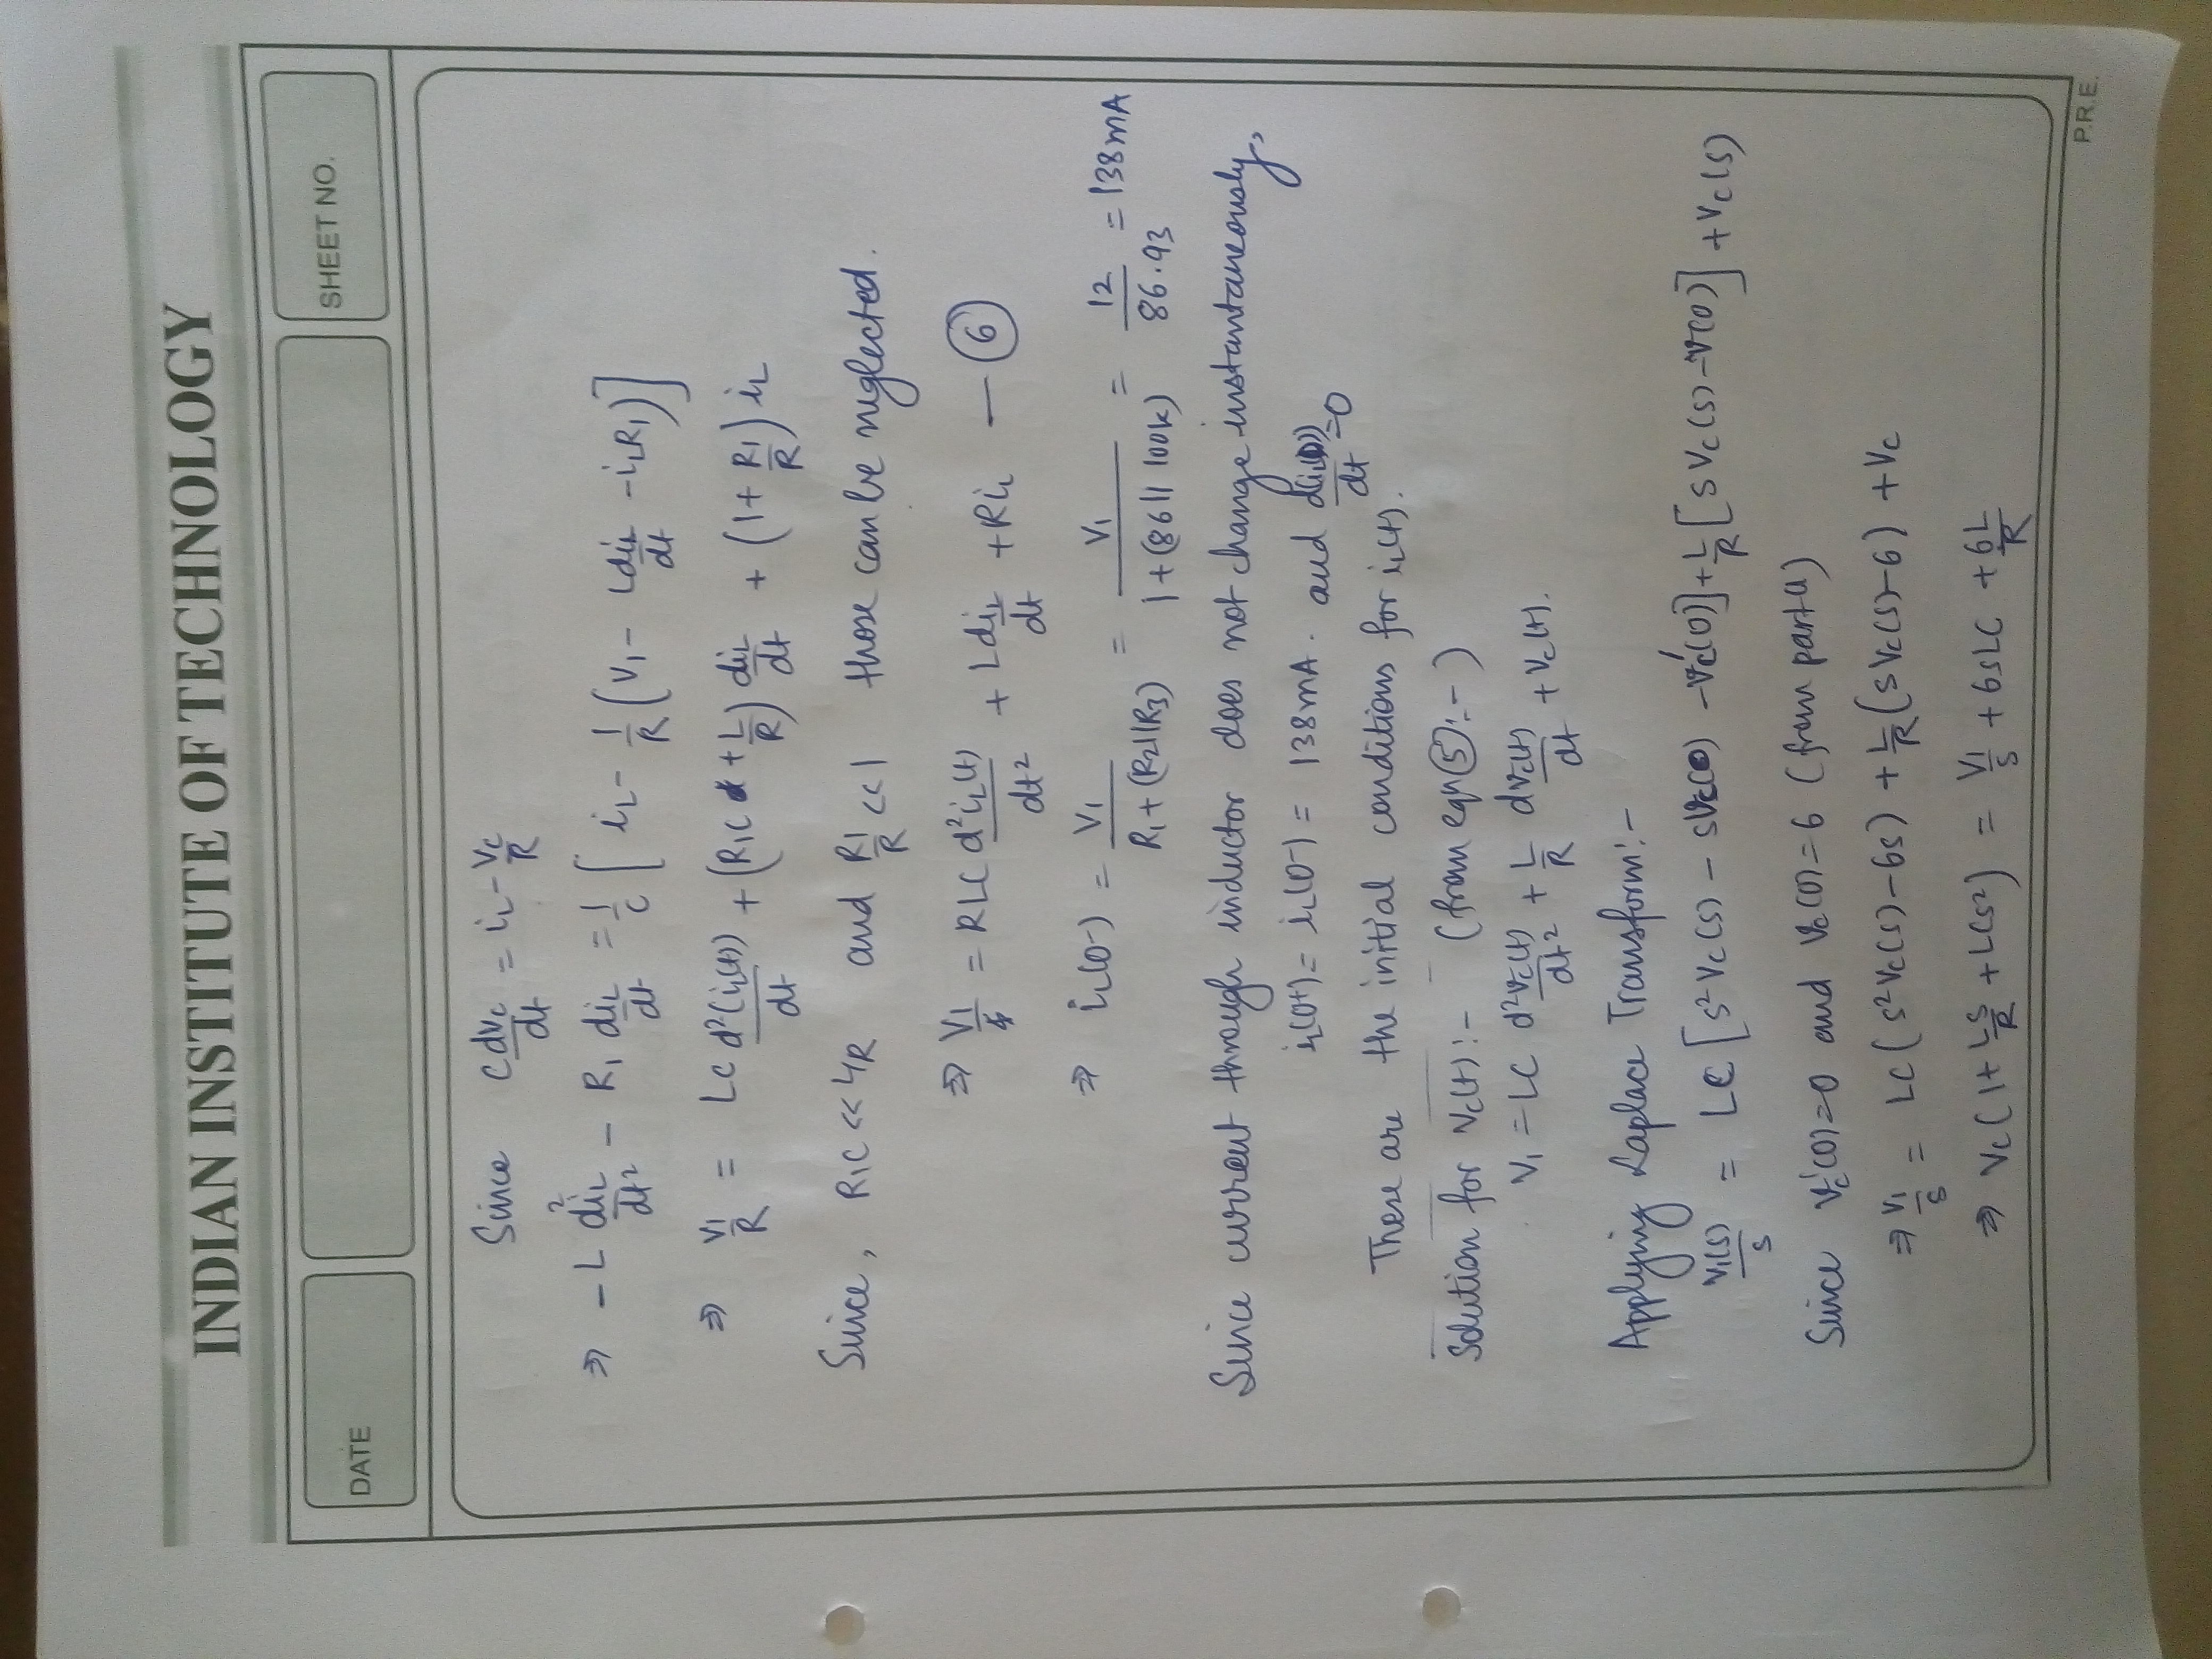 INDIAN INSTITUTE OF TECHNOLOGY
DATE
SHEET NO.
Since C dVc/dt = iL - Vc/R
⇒ -L d²iL/dt² - R1 diL/dt = 1/C [ iL - 1/R (V1 - L diL/dt - iLR1) ]
⇒ V1/R = LC d²(iL(t))/dt + (R1C + L/R) diL/dt + (1 + R1/R) iL
Since, R1C << L/R and R1/R << 1 those can be neglected.
⇒ V1 = RLC d²iL(t)/dt² + L diL/dt + RiL — ⑥
⇒ iL(0-) = V1/(R1 + (R2||R3)) = V1/(1 + (86 || 100k)) = 12/86.93 = 138mA
Since current through inductor does not change instantaneously,
iL(0+) = iL(0-) = 138mA. and d(iL(0))/dt = 0
These are the initial conditions for iL(t).
Solution for Vc(t):- (from eqn ⑤:-)
V1 = LC d²vc(t)/dt² + L/R dvc(t)/dt + Vc(t).
Applying Laplace Transform:-
V1(s)/s = LC [s² Vc(s) - sVc(0) - vc'(0)] + L/R [s Vc(s) - v(0)] + Vc(s)
Since vc'(0)=0 and Vc(0)=6 (from part a)
⇒ V1/s = LC (s² Vc(s) - 6s) + L/R (s Vc(s) - 6) + Vc
⇒ Vc (1 + Ls/R + LCs²) = V1/s + 6sLC + 6L/R
P.R.E.